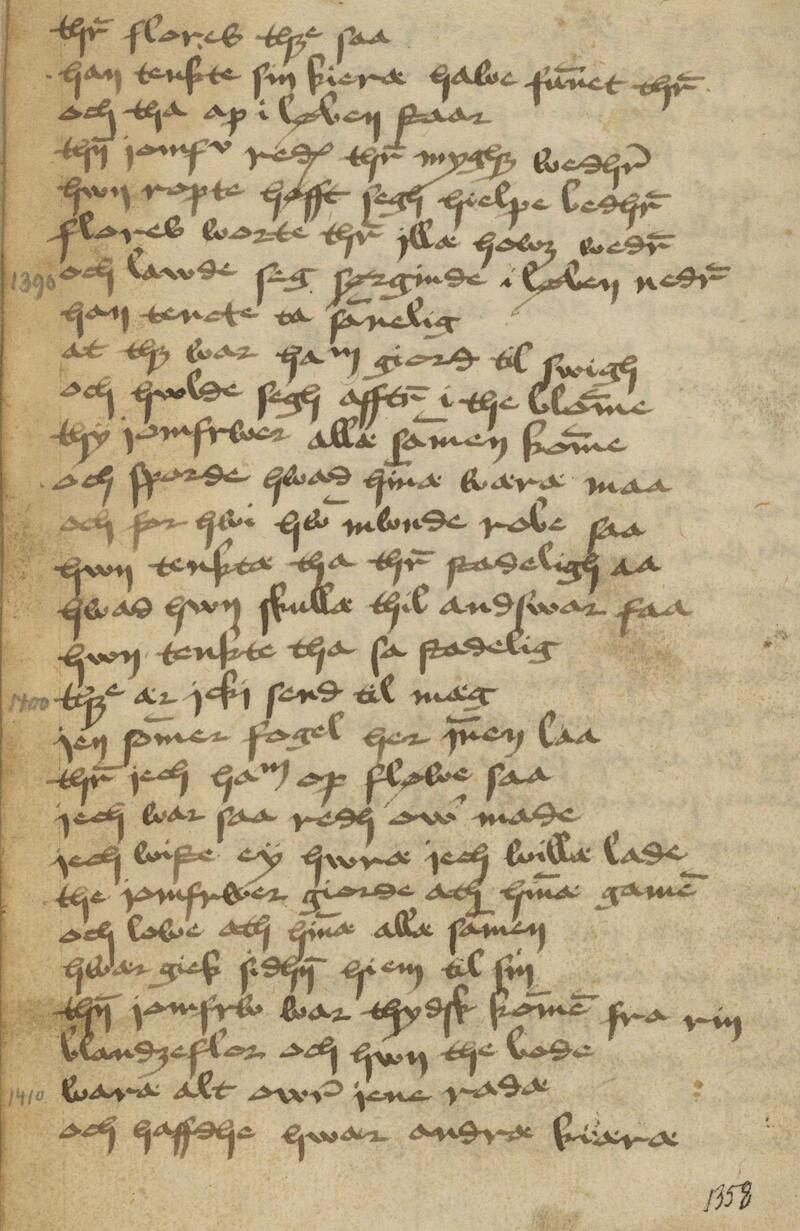 thr̄ flores thꝫe saa
han tenkte sin kieræ hawe fūnet thr̄
och tha op i løven staar
thn̄ jomfv redꝭ thr̄ myghꝫ wedhr̄
hwn ropte hafft segh hielpe bedhr̄
flores worte thr̄ jllæ howꝫ wedr̄
1390 och lawde seg sørginde i løven nedr̄
han tencte ta sānelig
at thꝫ war ham giord til swigh
och hwlde segh afftr̄ i the blōme
thy jomfrwer allæ sāmen kōme
och sporde hwad hīnæ wæræ maa
och for hwi hw̄ mwnde robe saa
hwn tenktæ tha thr̄ stadeligh aa
hwad hwn skullæ thil andswar faa
hwn tenkte tha sa stadelig
1400 thꝫe ær jcki send til mæg
jen sōmer fogel her jn̄en laa
thr̄ jech ham op fløwe saa
jech war saa redh ow̓ made
jech wiste ey hwræ jech willæ lade
the jomfrwer giorde ath hīnæ gamē
och lowe ath hīnæ allæ sāmen
hwar giek sidhn̄ hiem til sin
thn̄ jomfrw war thydsk kōmē fra rin
blandzeflor och hwn the bode
1410 waræ alt owr̄ jene radæ
och haffdhe hwar andræ kiæræ
1358